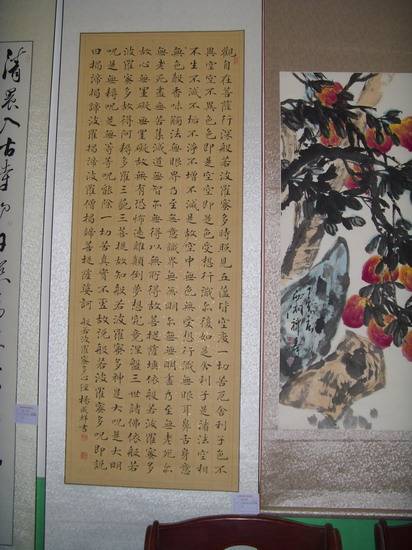 觀自在菩薩行深般若波羅蜜多時照見五蘊皆空度一切苦厄舍利子色不
異空空不異色色即是空空即是色受想行識亦復如是舍利子是諸法空相
不生不滅不垢不淨不增不減是故空中無色無受想行識無眼耳鼻舌身意
無色聲香味觸法無眼界乃至無意識界無無明亦無無明盡乃至無老死亦
無老死盡無苦集滅道無智亦無得以無所得故菩提薩埵依般若波羅蜜多
故心無罣礙無罣礙故無有恐怖遠離顛倒夢想究竟涅盤三世諸佛依般若
波羅蜜多故得阿耨多羅三藐三菩提故知般若波羅蜜多神是大呪是大明
呪是無上呪是無等等呪能除一切苦真實不虛故說般若波羅蜜多呪即說
曰揭諦揭諦波羅揭諦波羅僧揭諦菩提薩婆訶 般若波羅蜜多心經 楊成祥書
清晨入古寺初日照高